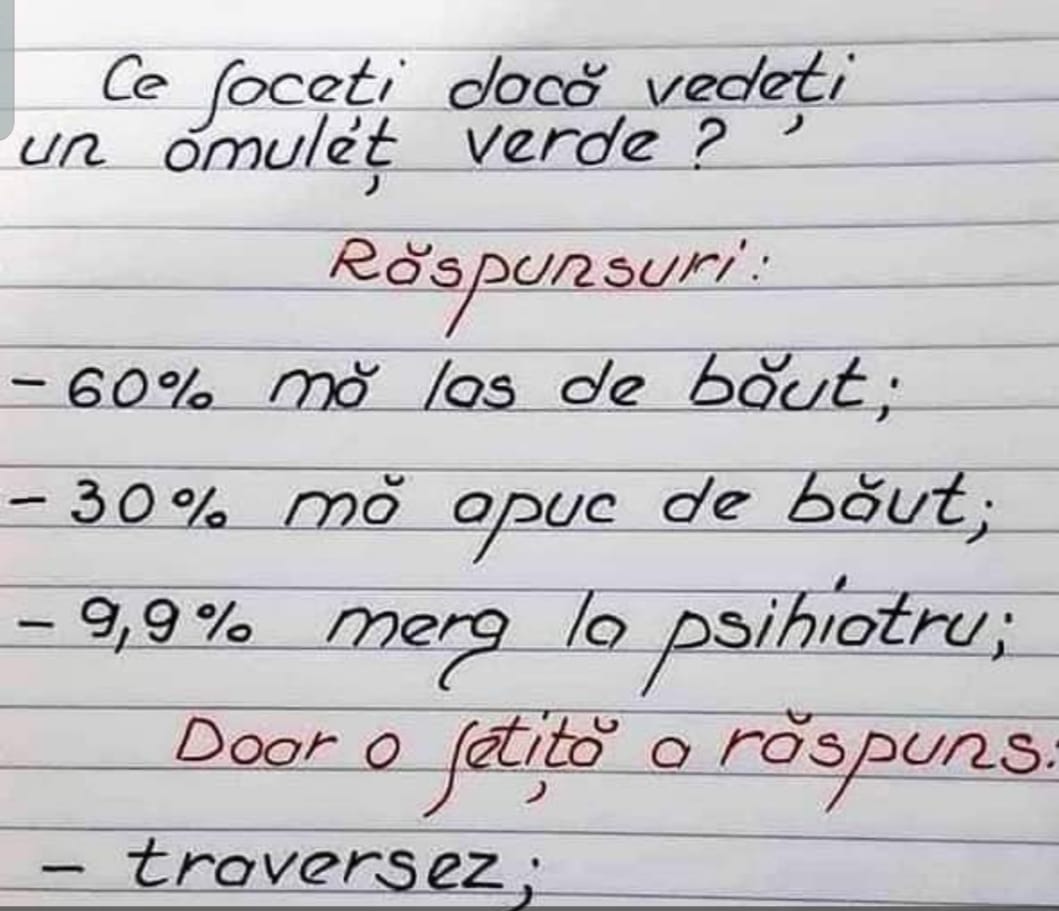 Ce faceți dacă vedeți
un omuleț verde?
Răspunsuri:
- 60% mă las de băut;
- 30% mă apuc de băut;
- 9,9% merg la psihiatru;
Doar o fetiță a răspuns:
- traversez;